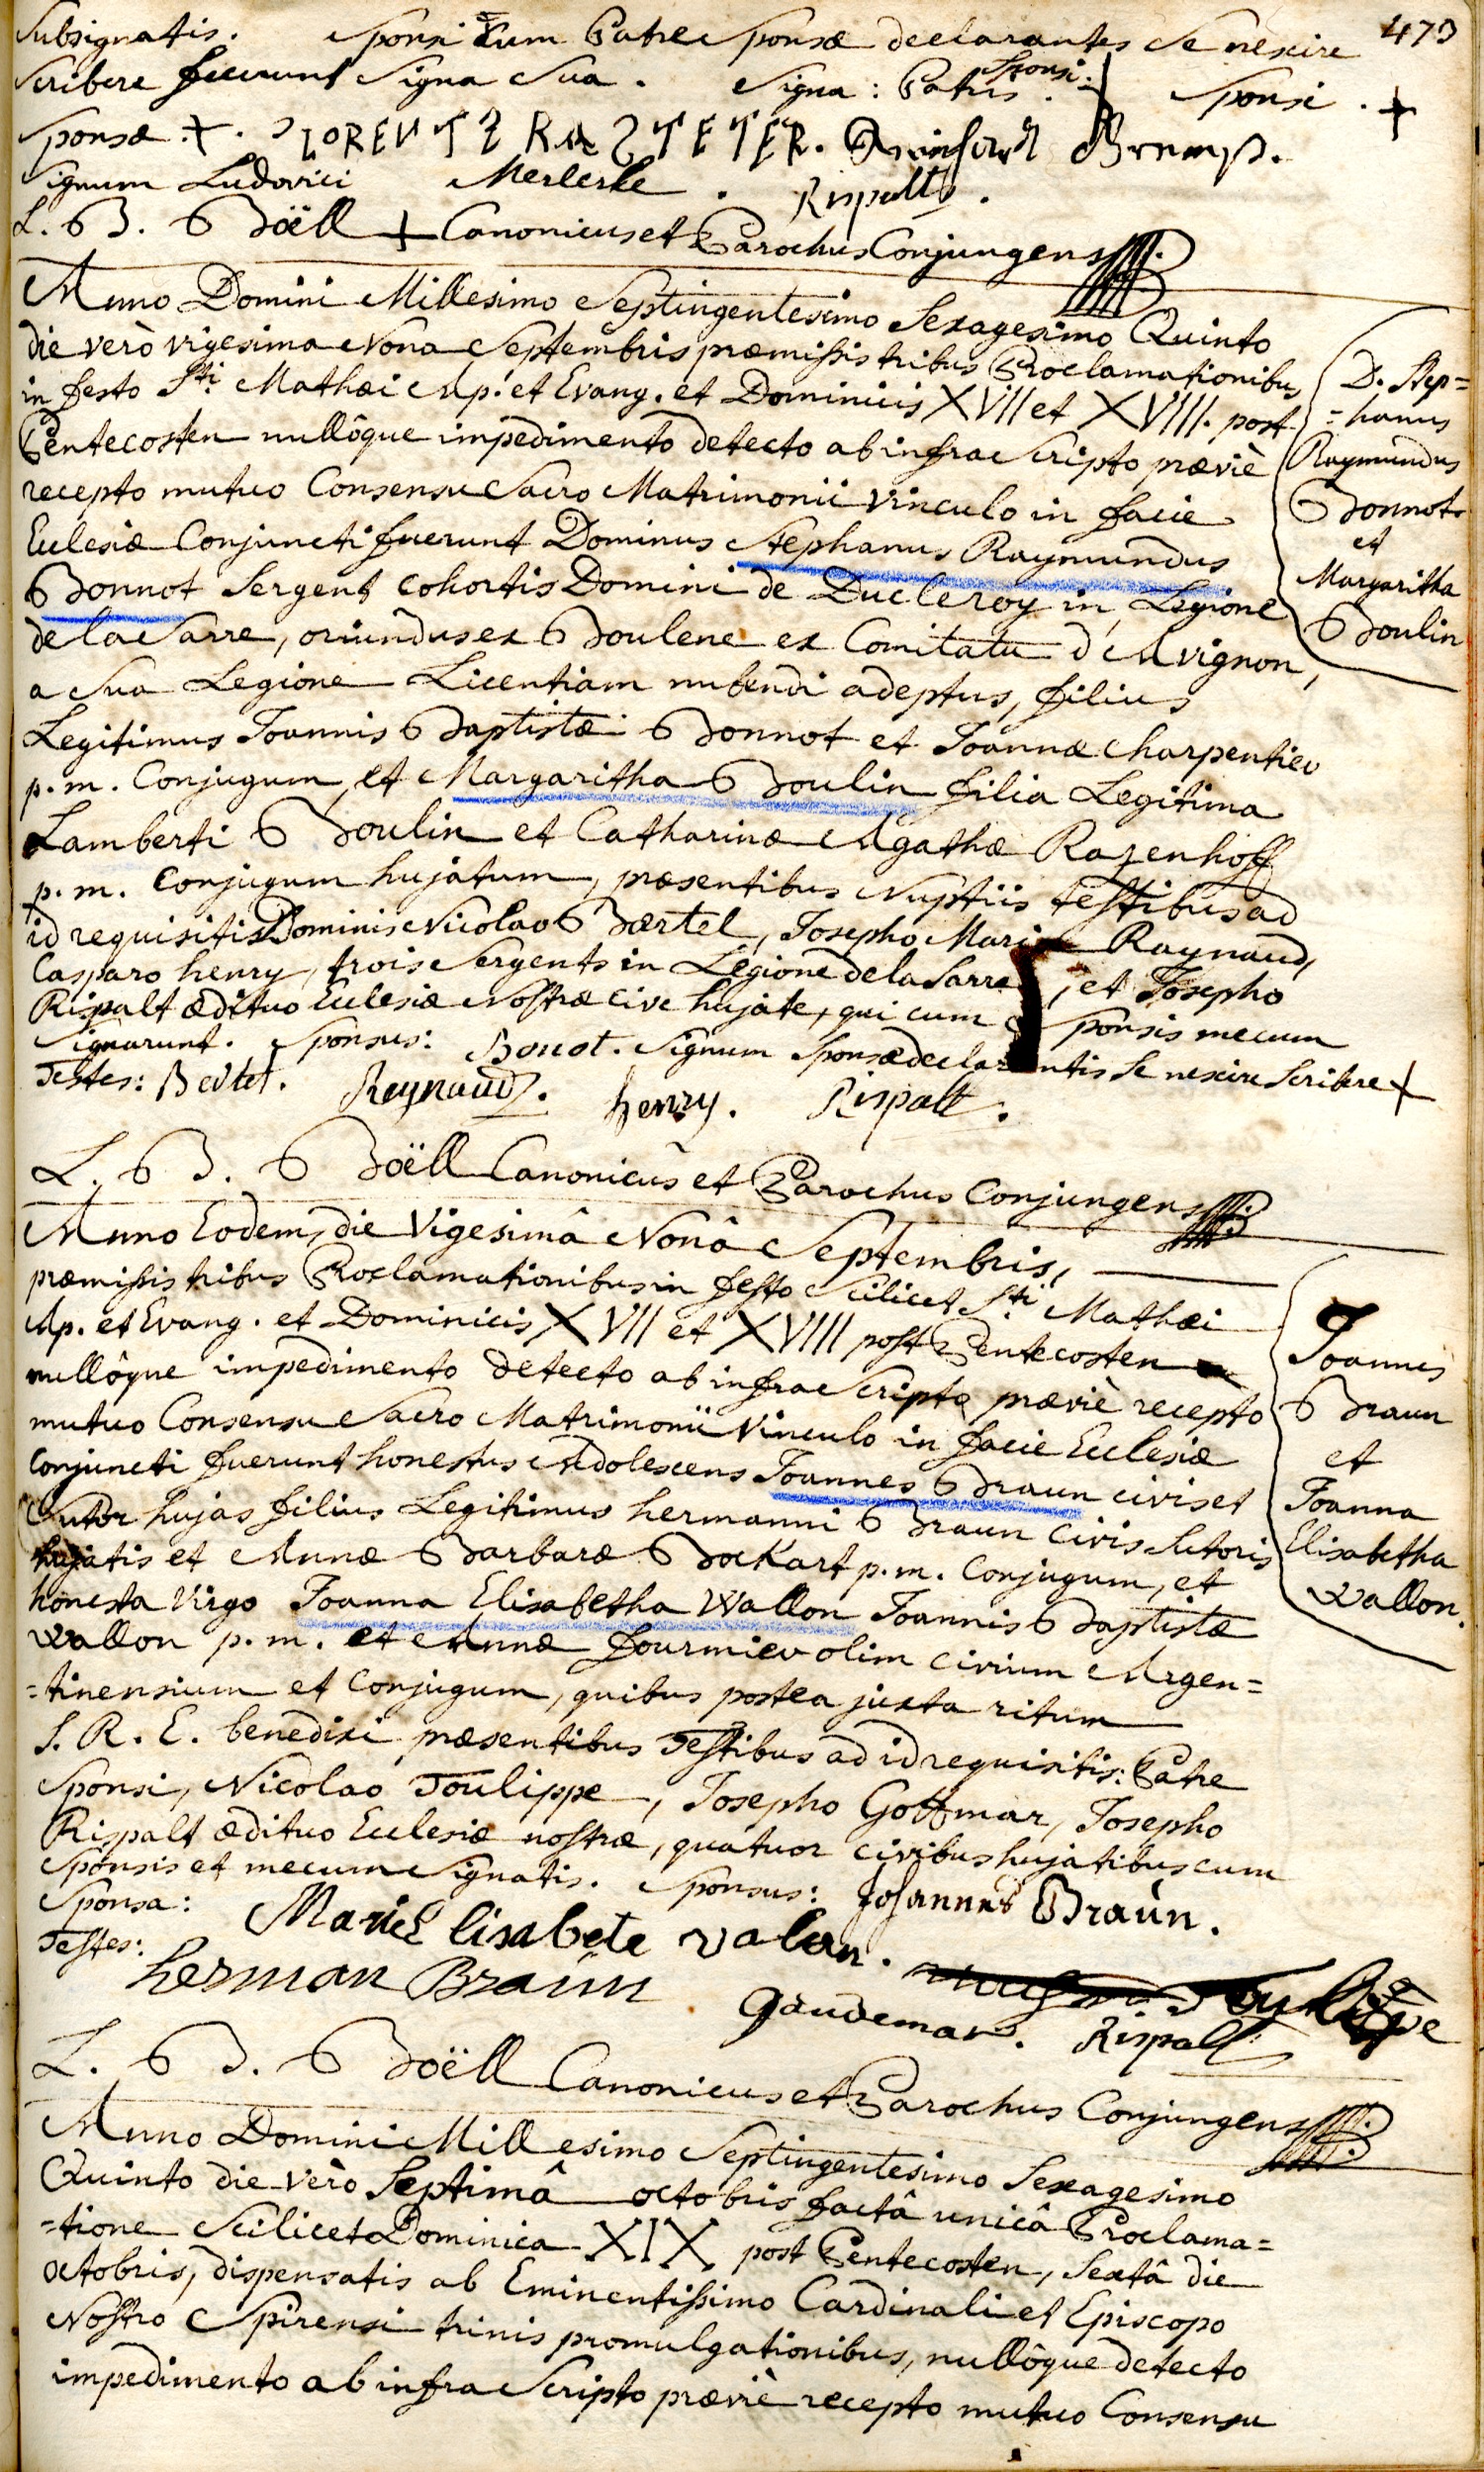 473
Subsignatis. Sponsi cum Patre Sponsæ declarantes Se nescire
Scribere fecerunt Signa Sua. Signa: Patris Sponsi: + Sponsi. +
Sponsæ. +. LORENTZ RASTETER.
Signum Ludovici Merlerle. Rispallt.
L. B. Boëll + Canonicus et Parochus Conjungens
Anno Domini Millesimo Septingentesimo Sexagesimo Quinto
die verò vigesima Nona Septembris præmissis tribus Proclamationibus
in festo Sti. Mathæi Ap. et Evang. et Dominicis XVII et XVIII. post
Pentecosten nullôque impedimento detecto ab infra Scripto præviè
recepto mutuo Consensu Sacro Matrimonii vinculo in facie
Ecclesiæ Conjuncti fuerunt Dominus Stephanus Raymundus
Bonnot Sergent cohortis Domini de Ducleroy in Legione
de la Sarre, oriundus ex Boulene ex Comitatu d'Avignon,
a Sua Legione Licentiam nubendi adeptus, filius
Legitimus Joannis Baptistæ Bonnot et Joannæ Charpentier
p. m. Conjugum, et Margaritha Boulin filia Legitima
Lamberti Boulin et Catharinæ Agathæ Razenhoff
p. m. conjugum hujatum, præsentibus Nuptiis testibus ad
id requisitis Dominis Nicolao Bærtel, Josepho Maria Raynaud,
Casparo henry, trois Sergents in Legione de la Sarre, et Josepho
Rispalt ædituo Ecclesiæ Nostræ cive hujate, qui cum Sponsis mecum
Signarunt. Sponsus: Bonot. Signum Sponsæ declarantis Se nescire Scribere +
Testes: Bertel. Reynaud. henry. Rispalt.
L. B. Boëll Canonicus et Parochus Conjungens
D. Step=
=hanus
Raymundus
Bonnot
et
Margaritha
Boulin
Anno Eodem, die Vigesimâ Nonâ Septembris,
præmissis tribus Proclamationibus in festo Scilicet Sti Mathæi
Ap. et Evang. et Dominicis XVII et XVIII post Pentecosten
nullôque impedimento detecto ab infra Scripto præviè recepto
mutuo Consensu Sacro Matrimonii Vinculo in facie Ecclesiæ
conjuncti fuerunt honestus Adolescens Joannes Braun civis et
Sutor hujas filius Legitimus hermanni Braun civis Sutoris
hujatis et Annæ Barbaræ Bockart p. m. Conjugum, et
honesta Virgo Joanna Elisabetha Wallon Joannis Baptistæ
Wallon p. m. et Annæ fourmier olim civium Argen=
=tinensium et Conjugum, quibus postea juxta ritum
S. R. E. benedixi præsentibus Testibus ad id requisitis: Patre
Sponsi, Nicolao Toulippe, Josepho Gottmar, Josepho
Rispalt ædituo Ecclesiæ nostræ, quatuor civibus hujatibus cum
Sponsis et mecum Signatis. Sponsus: Johannes Braun.
Sponsa: Marie Elisabete valon.
Testes: herman Braun
gaudemar. Rispalt
L. B. Boëll Canonicus et Parochus Conjungens
Joannes
Braun
et
Joanna
Elisabetha
Wallon.
Anno Domini Millesimo Septingentesimo Sexagesimo
Quinto die verò Septimâ octobris factâ unicâ Proclama=
=tione Scilicet Dominica XIX post Pentecosten, Sextâ die
octobris, dispensatis ab Eminentissimo Cardinali et Episcopo
Nostro Spirensi trinis promulgationibus, nullôque detecto
impedimento ab infra Scripto præviè recepto mutuo Consensu